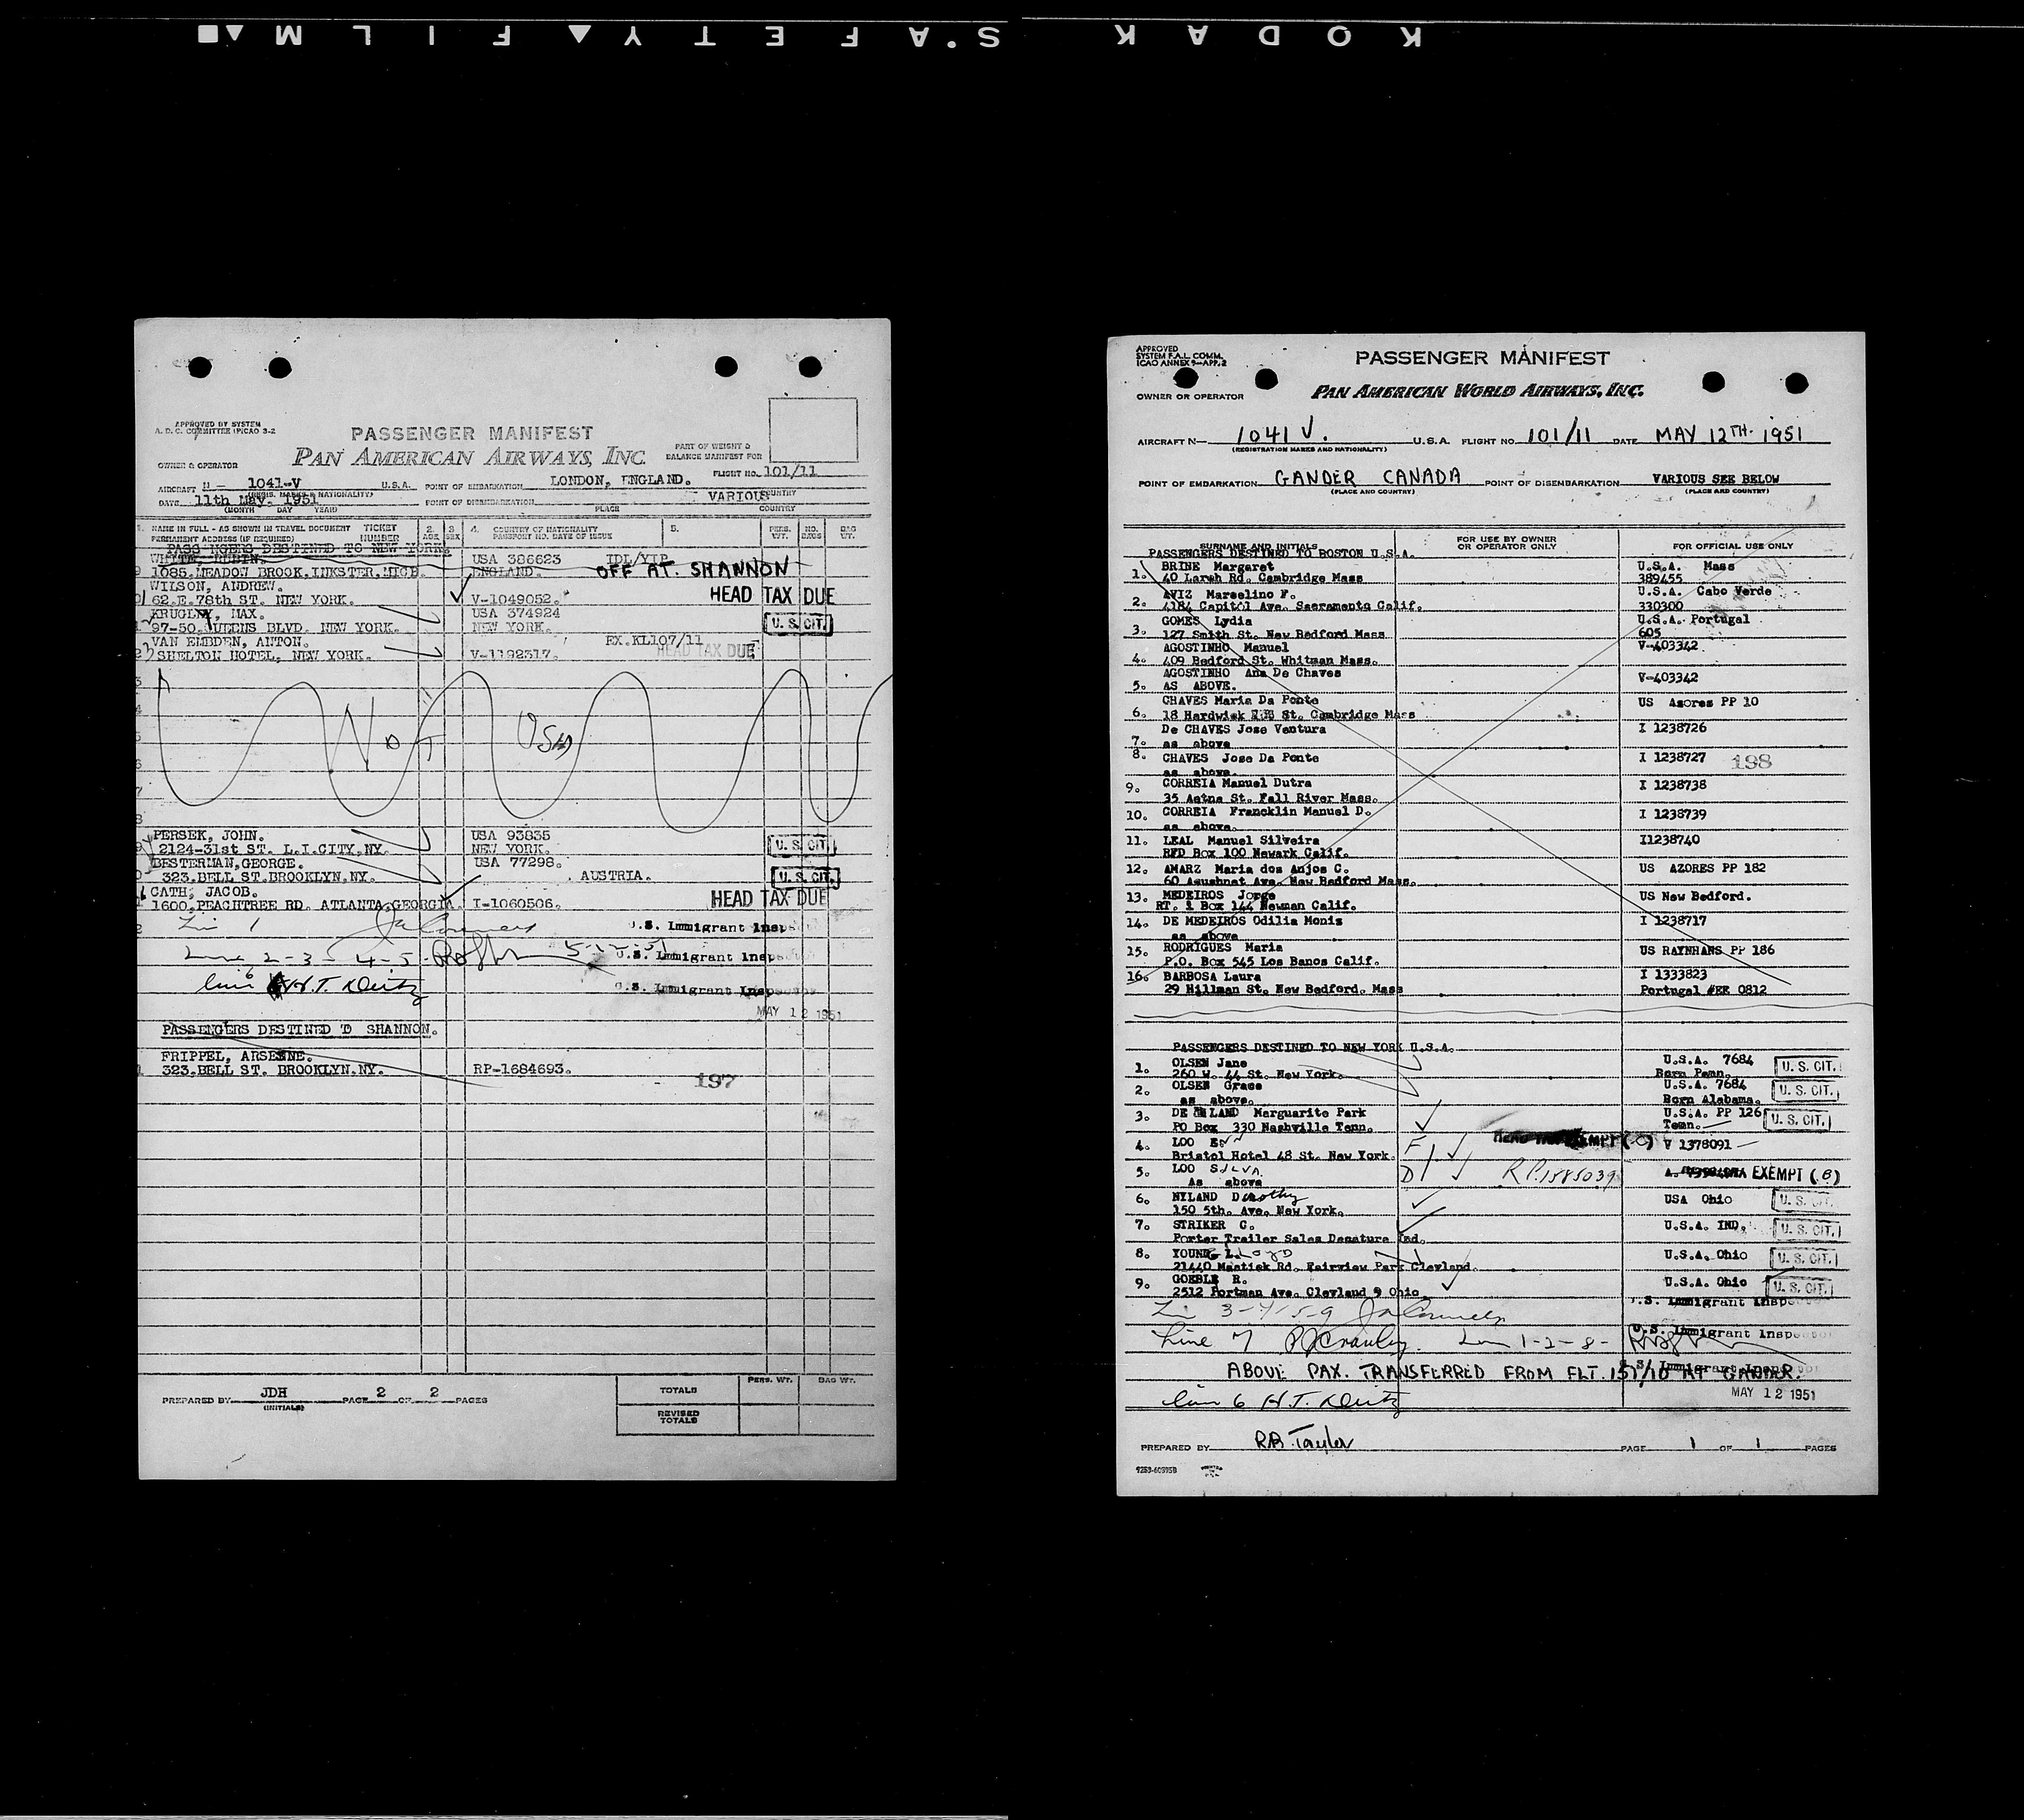 S'AFETY FILM
KODAK
APPROVED BY SYSTEM
A. D. C. COMMITTEE (P)ICAO 3-2
PASSENGER MANIFEST
PAN AMERICAN AIRWAYS, INC.
PART OF WEIGHT &
BALANCE MANIFEST FOR
OWNER & OPERATOR
FLIGHT NO. 101/11
AIRCRAFT N - 1041-V U.S.A. POINT OF EMBARKATION LONDON, ENGLAND.
(REGIS. MARKS & NATIONALITY)
DATE 11th May. 1951 POINT OF DISEMBARKATION VARIOUS COUNTRY
(MONTH DAY YEAR) PLACE COUNTRY
1. NAME IN FULL - AS SHOWN IN TRAVEL DOCUMENT TICKET 2. 3 4. COUNTRY OF NATIONALITY 5. PERS. NO. BAG
PERMANENT ADDRESS (IF REQUIRED) NUMBER AGE SEX PASSPORT NO. DATE OF ISSUE WT. BAGS WT.
PASSENGERS DESTINED TO NEW YORK.
USA 386623 IDL/VIP
1085.MEADOW BROOK.INKSTER.MICH. ENGLAND. OFF AT. SHANNON
WILSON, ANDREW.
62.E.78th ST. NEW YORK. V-1049052. HEAD TAX DUE
KRUGLY, MAX. USA 374924
97-50.QUEENS BLVD. NEW YORK. NEW YORK. U. S. CIT.
VAN EMBDEN, ANTON. EX.KL107/11
SHELTON HOTEL, NEW YORK. V-1192317. HEAD TAX DUE
NOT USED
PERSEK, JOHN. USA 93835
2124-31st ST. L.I.CITY.NY. NEW YORK. U. S. CIT.
BESTERMAN,GEORGE. USA 77298.
323.BELL ST.BROOKLYN.NY. AUSTRIA. U. S. CIT.
CATH, JACOB.
1600,PEACHTREE RD. ATLANTA,GEORGIA. I-1060506. HEAD TAX DUE
U.S. Immigrant Inspector
Line 2-3-4-5- 5-12-51 U.S. Immigrant Inspector
Line 6 H.T. U.S. Immigrant Inspector
MAY 12 1951
PASSENGERS DESTINED TO SHANNON.
FRIPPEL, ARSENNE.
323.BELL ST. BROOKLYN.NY. RP-1684693.
197
PERS. WT. BAG WT.
TOTALS
PREPARED BY JDH PAGE 2 OF 2 PAGES
(INITIALS)
REVISED
TOTALS
APPROVED
SYSTEM F.A.L. COMM.
ICAO ANNEX 9-APP. 2
PASSENGER MANIFEST
PAN AMERICAN WORLD AIRWAYS, INC.
OWNER OR OPERATOR
AIRCRAFT N- 1041 V. U.S.A. FLIGHT NO. 101/11 DATE MAY 12TH. 1951
(REGISTRATION MARKS AND NATIONALITY)
POINT OF EMBARKATION GANDER CANADA POINT OF DISEMBARKATION VARIOUS SEE BELOW
(PLACE AND COUNTRY) (PLACE AND COUNTRY)
SURNAME AND INITIALS FOR USE BY OWNER OR OPERATOR ONLY FOR OFFICIAL USE ONLY
PASSENGERS DESTINED TO BOSTON U.S.A.
1. BRINE Margaret U.S.A. Mass
40 Larch Rd. Cambridge Mass 389455
2. AVIZ Marcelino F. U.S.A. Cabo Verde
4184 Capitol Ave. Sacramento Calif. 330300
3. GOMES Lydia U.S.A. Portugal
127 Smith St. New Bedford Mass 605
AGOSTINHO Manuel V-403342
4. 409 Bedford St. Whitman Mass.
AGOSTINHO Ana De Chaves V-403342
5. AS ABOVE.
CHAVES Maria Da Ponte US Azores PP 10
6. 18 Hardwick St. Cambridge Mass
De CHAVES Jose Ventura I 1238726
7. as above
8. CHAVES Jose Da Ponte I 1238727 198
as above.
9. CORREIA Manuel Dutra I 1238738
35 Aetna St. Fall River Mass.
10. CORREIA Francklin Manuel D. I 1238739
as above.
11. LEAL Manuel Silveira I1238740
RFD Box 100 Newark Calif.
12. AMARZ Maria dos Anjos C. US AZORES PP 182
60 Acushnet Ave. New Bedford Mass.
13. MEDEIROS Jorge US New Bedford.
RT. 1 Box 144 Newman Calif.
14. DE MEDEIROS Odilia Monis I 1238717
as above
15. RODRIGUES Maria US RAYNHANS PP 186
P.O. Box 545 Los Banos Calif.
16. BARBOSA Laura I 1333823
29 Hillman St. New Bedford. Mass Portugal #EE 0812
PASSENGERS DESTINED TO NEW YORK U.S.A.
1. OLSEN Jane U.S.A. 7684 U. S. CIT.
260 W. 44 St. New York. Born Penn.
2. OLSEN Grace U.S.A. 7684 U. S. CIT.
as above. Born Alabama.
3. DE LAND Marguarite Park U.S.A. PP 126 U. S. CIT.
PO Box 330 Nashville Tenn. Tenn.
4. LOO F V 1378091
Bristol Hotel 48 St. New York.
5. LOO SILVA D R.P.1585039 EXEMPT (B)
As above
6. NYLAND Dorothy USA Ohio U. S. CIT.
150 5th. Ave. New York.
7. STRIKER C. U.S.A. IND. U. S. CIT.
Porter Trailer Sales Decature Ind.
8. YOUNG LLOYD U.S.A. Ohio U. S. CIT.
21440 Mastick Rd. Fairview Park Clevland.
9. GOEBLE R. U.S.A. Ohio U. S. CIT.
2512 Portman Ave. Clevland 9 Ohio
U.S. Immigrant Inspector
Line 7 Line 1-2-8- U.S. Immigrant Inspector
U.S. Immigrant Inspector
ABOVE PAX. TRANSFERRED FROM FLT. 151/10 AT GANDER.
MAY 12 1951
Line 6 H.T.
PREPARED BY R.B. Tayler PAGE 1 OF 1 PAGES